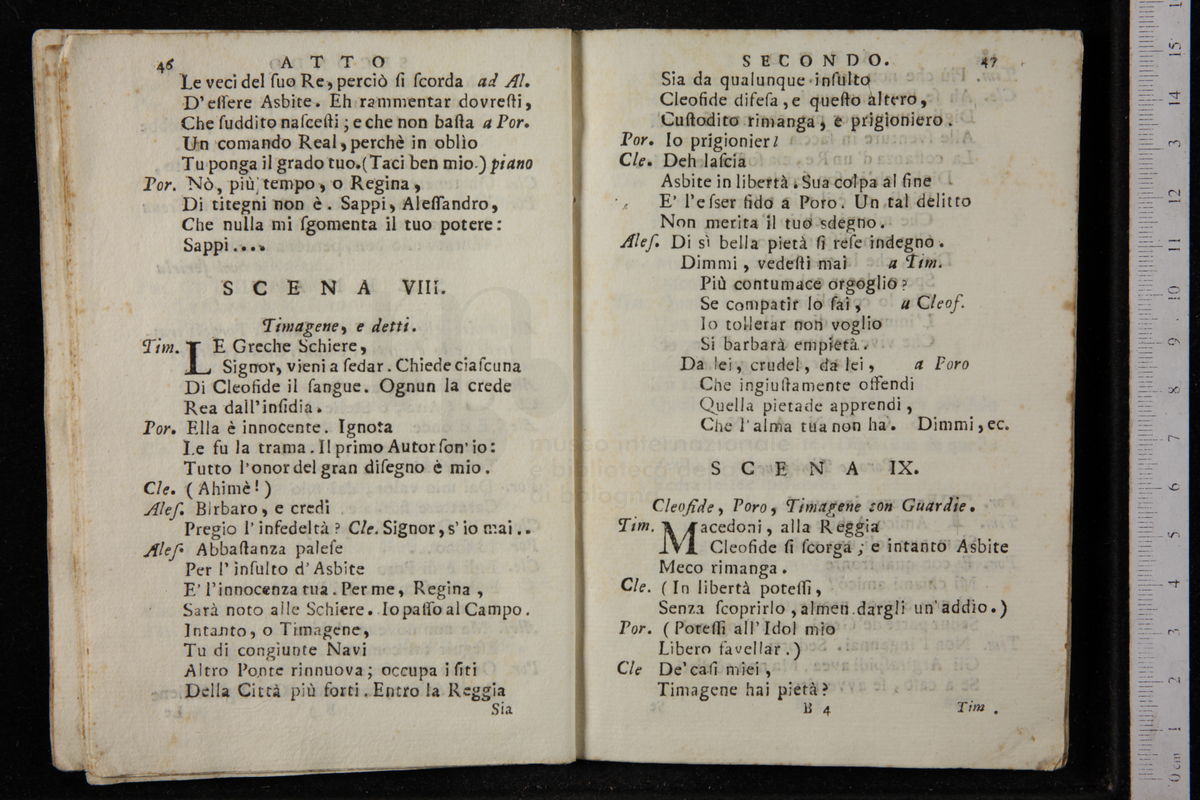 46 ATTO
Le veci del ſuo Re, perciò ſi ſcorda ad Al.
D'eſſere Asbite. Eh rammentar dovreſti,
Che ſuddito naſceſti; e che non baſta a Por.
Un comando Real, perchè in oblìo
Tu ponga il grado tuo. (Taci ben mio.) piano
Por. Nò, più tempo, o Regina,
Di titegni non è. Sappi, Aleſſandro,
Che nulla mi ſgomenta il tuo potere:
Sappi....
SCENA VIII.
Timagene, e detti.
Tim. LE Greche Schiere,
Signor, vieni a ſedar. Chiede ciaſcuna
Di Cleofide il ſangue. Ognun la crede
Rea dall'inſidia.
Por. Ella è innocente. Ignota
Le fu la trama. Il primo Autor ſon' io:
Tutto l'onor del gran diſegno è mio.
Cle. (Ahimè!)
Aleſ. Birbaro, e credi
Pregio l'infedeltà? Cle. Signor, s'io mai..
Aleſ. Abbaſtanza paleſe
Per l'inſulto d'Asbite
E' l'innocenza tua. Per me, Regina,
Sarà noto alle Schiere. Io paſſo al Campo.
Intanto, o Timagene,
Tu di congiunte Navi
Altro Ponte rinnuova; occupa i ſiti
Della Città più forti. Entro la Reggia
Sia
SECONDO. 47
Sia da qualunque inſulto
Cleofide difeſa, e queſto altero,
Cuſtodito rimanga, e prigioniero.
Por. Io prigionier!
Cle. Deh laſcia
Asbite in libertà. Sua colpa al fine
E' l'eſser fido a Poro. Un tal delitto
Non merita il tuo sdegno.
Aleſ. Di sì bella pietà ſi reſe indegno.
Dimmi, vedeſti mai a Tim.
Più contumace orgoglio?
Se compatir lo fai, a Cleof.
Io tollerar non voglio
Si barbarà empietà.
Da lei, crudel, da lei, a Poro
Che ingiuſtamente offendi
Quella pietade apprendi,
Che l'alma tua non ha. Dimmi, ec.
SCENA IX.
Cleofide, Poro, Timagene con Guardie.
Tim. Macedoni, alla Reggia
Cleofide ſi ſcorga; e intanto Asbite
Meco rimanga.
Cle. (In libertà poteſſi,
Senza ſcoprirlo, almen dargli un'addio.)
Por. (Poteſſi all'Idol mio
Libero favellar.)
Cle De' caſi miei,
Timagene hai pietà?
B 4 Tim.
museo internazionale
e biblioteca della
di bologna
0 cm 1 2 3 4 5 6 7 8 9 10 11 12 13 14 15